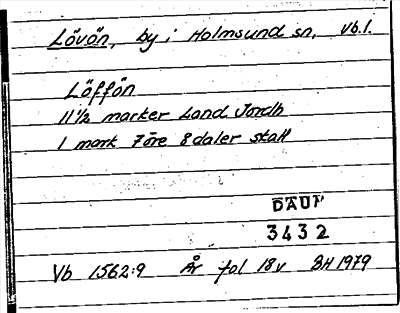 Lövön, by i Holmsund sn, Vb.l.
Löffön
11 1/2 marker Land Jordh
1 mark 7 öre 8 daler skatt
DAUM
3432
Vb 1562:9 År fol 18v BH 1979